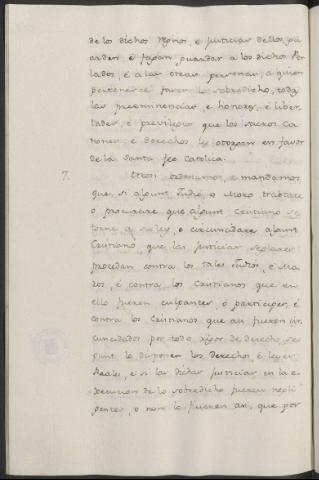 de los dichos Regnos, e justicias dellos, gu
arden e fagan guardar a los dichos Per
lados, é a las otras personas, a quien
pertenesce facer lo sobredicho, todas
las preeminencias, e honores, é liber
tades, é previlegios que los sacros Ca
nones e derechos les otorgan en favor
de la Santa fee Catolica.
7. Otrosi ordenamos, e mandamos
que si algunt Judio, o Moro tractare
o procurare que algunt Cristiano se
torne a su ley, o circuncidare algunt
Cristiano, que las justicias seglares
procedan contra los tales Judios, é Mo
ros, é contra los Cristianos que en
ello fueren culpantes, ó participes, é
contra los Cristianos que asi fueren cir
cuncidados, por todo rigor de derecho, se
gunt lo disponen los derechos é leyes
Reales, e si las dichas justicias en la e
xecucion de lo sobredicho fueren negli
gentes, o non lo fizieren asi, que por